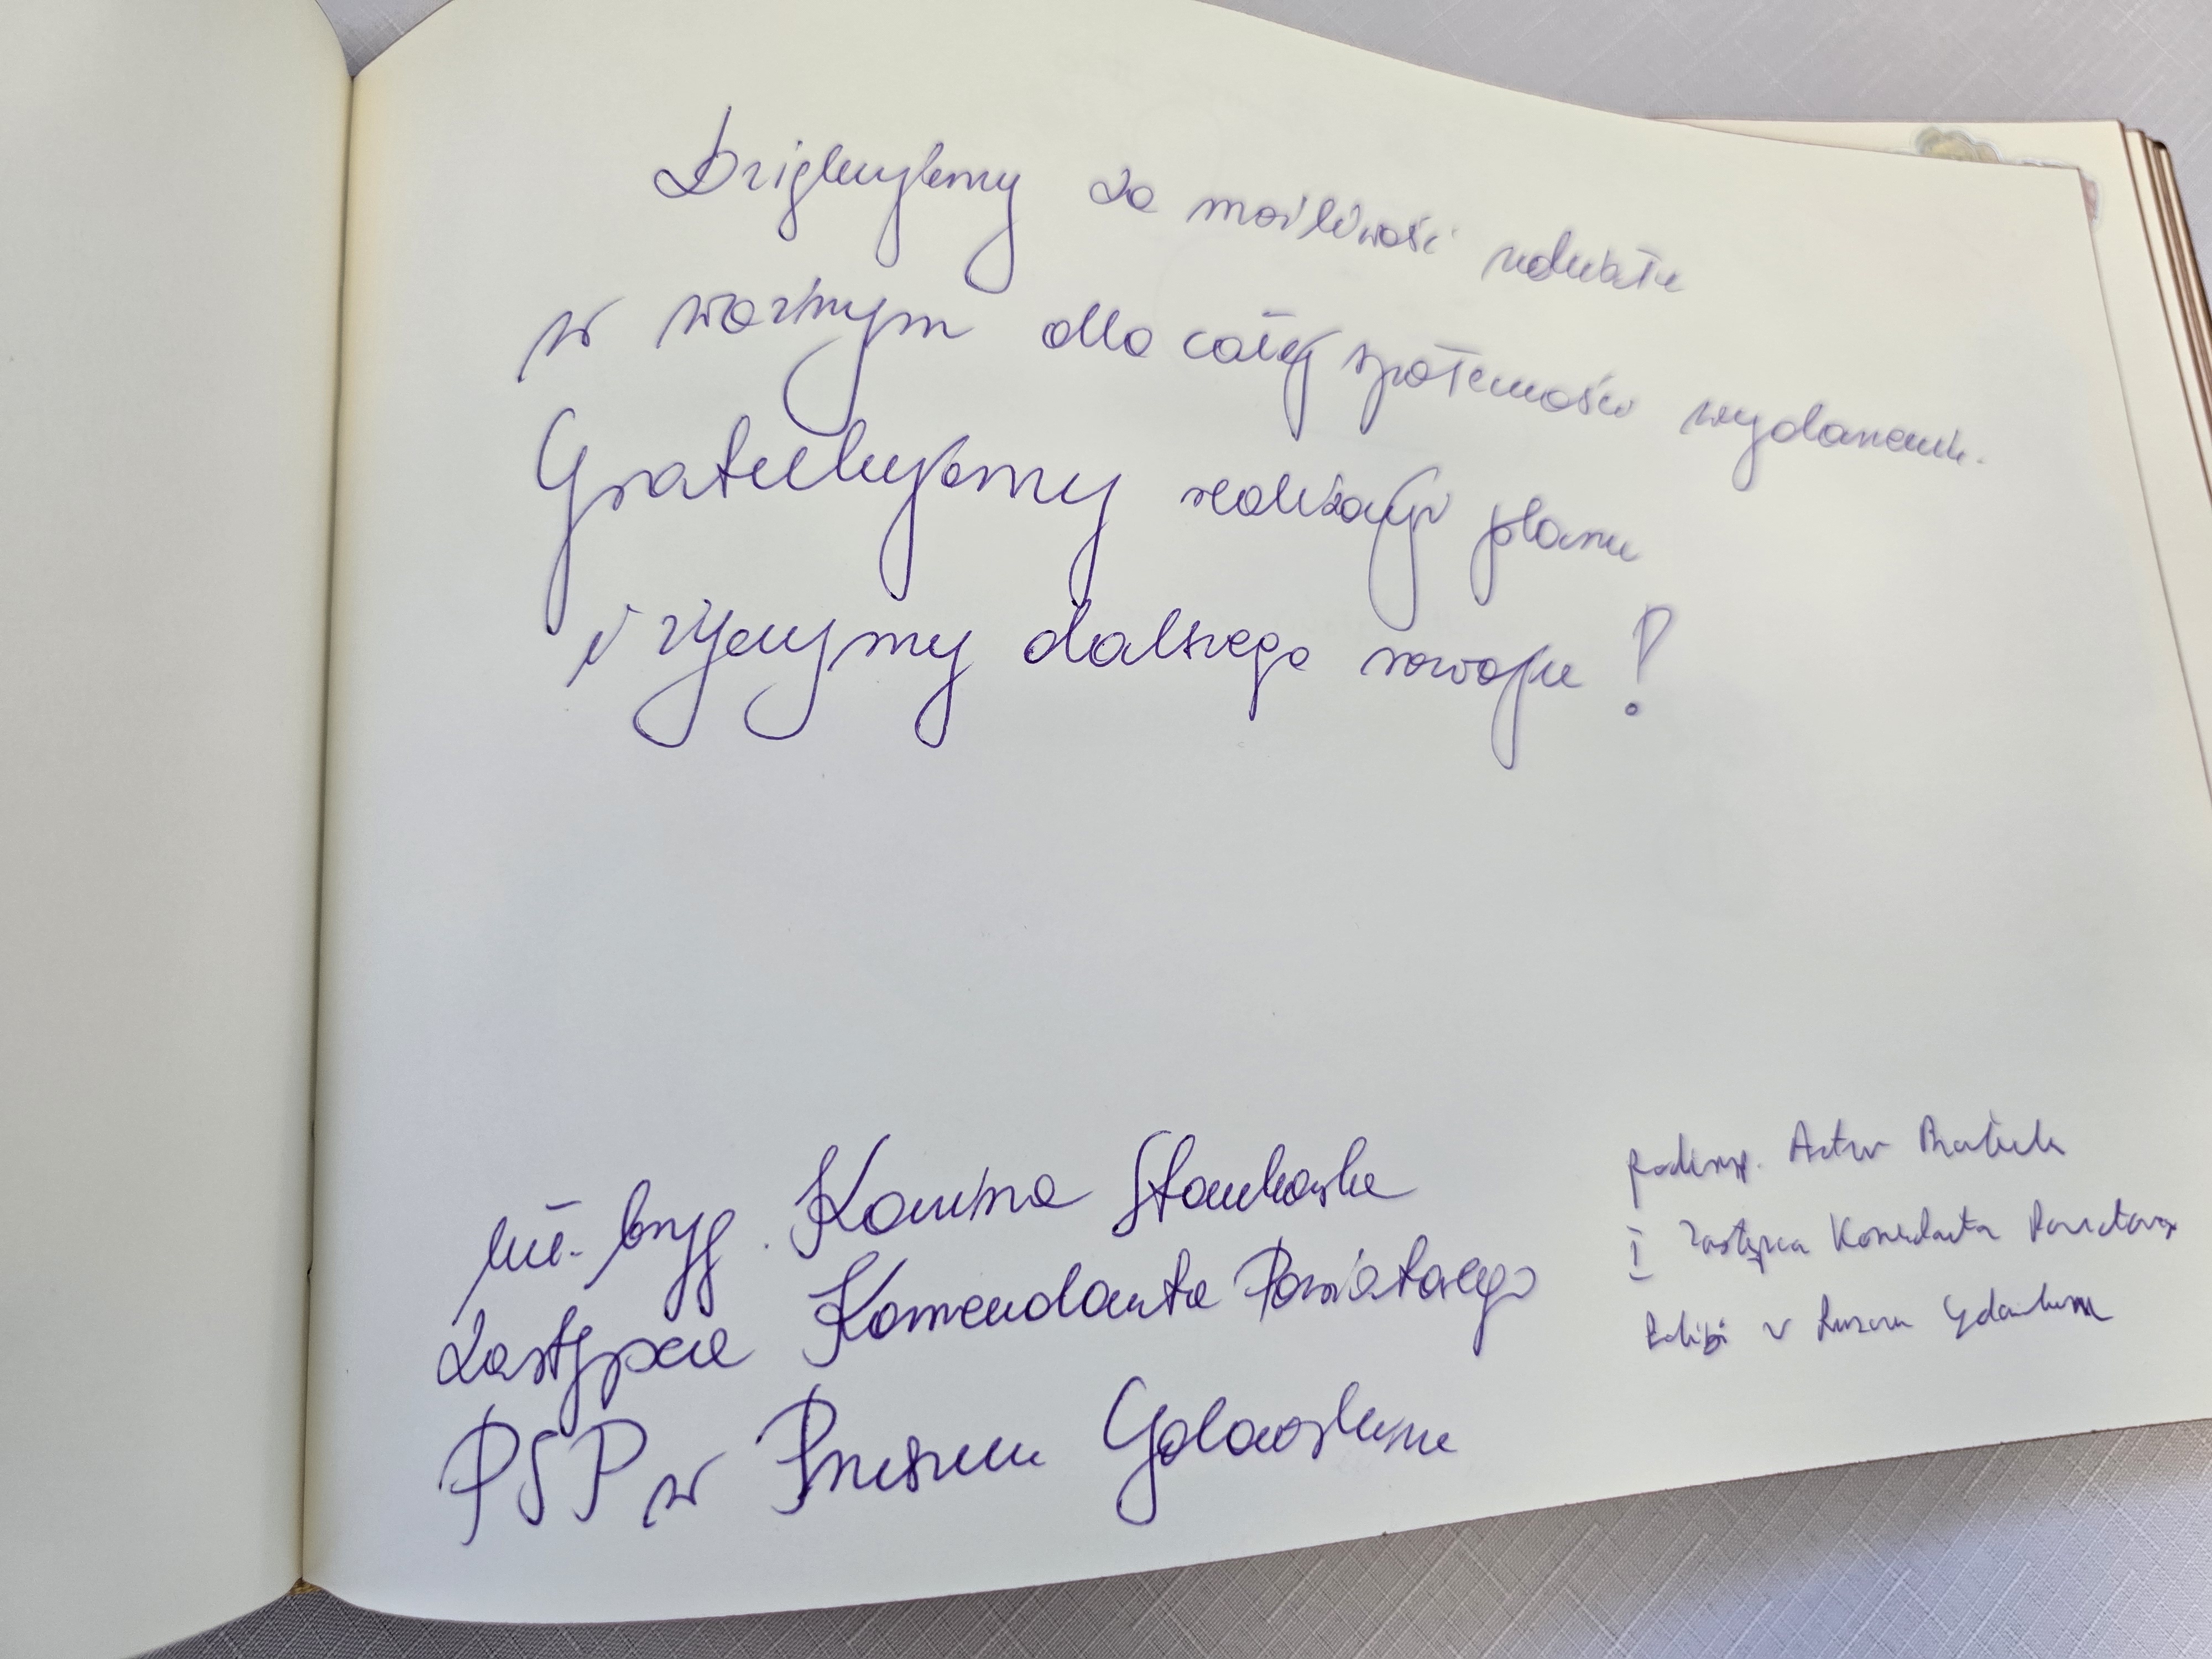 Dziękujemy za możliwość udziału
w ważnym dla całej społeczności wydarzeniu.
Gratulujemy realizacji planu
i życzymy dalszego rozwoju!
bryg. Stankowska
Zastępca Komendanta Powiatowego
PSP w Pruszczu Gdańskim
podinsp. Artur
I Zastępca Komendanta Powiatowego
Policji w Pruszczu Gdańskim